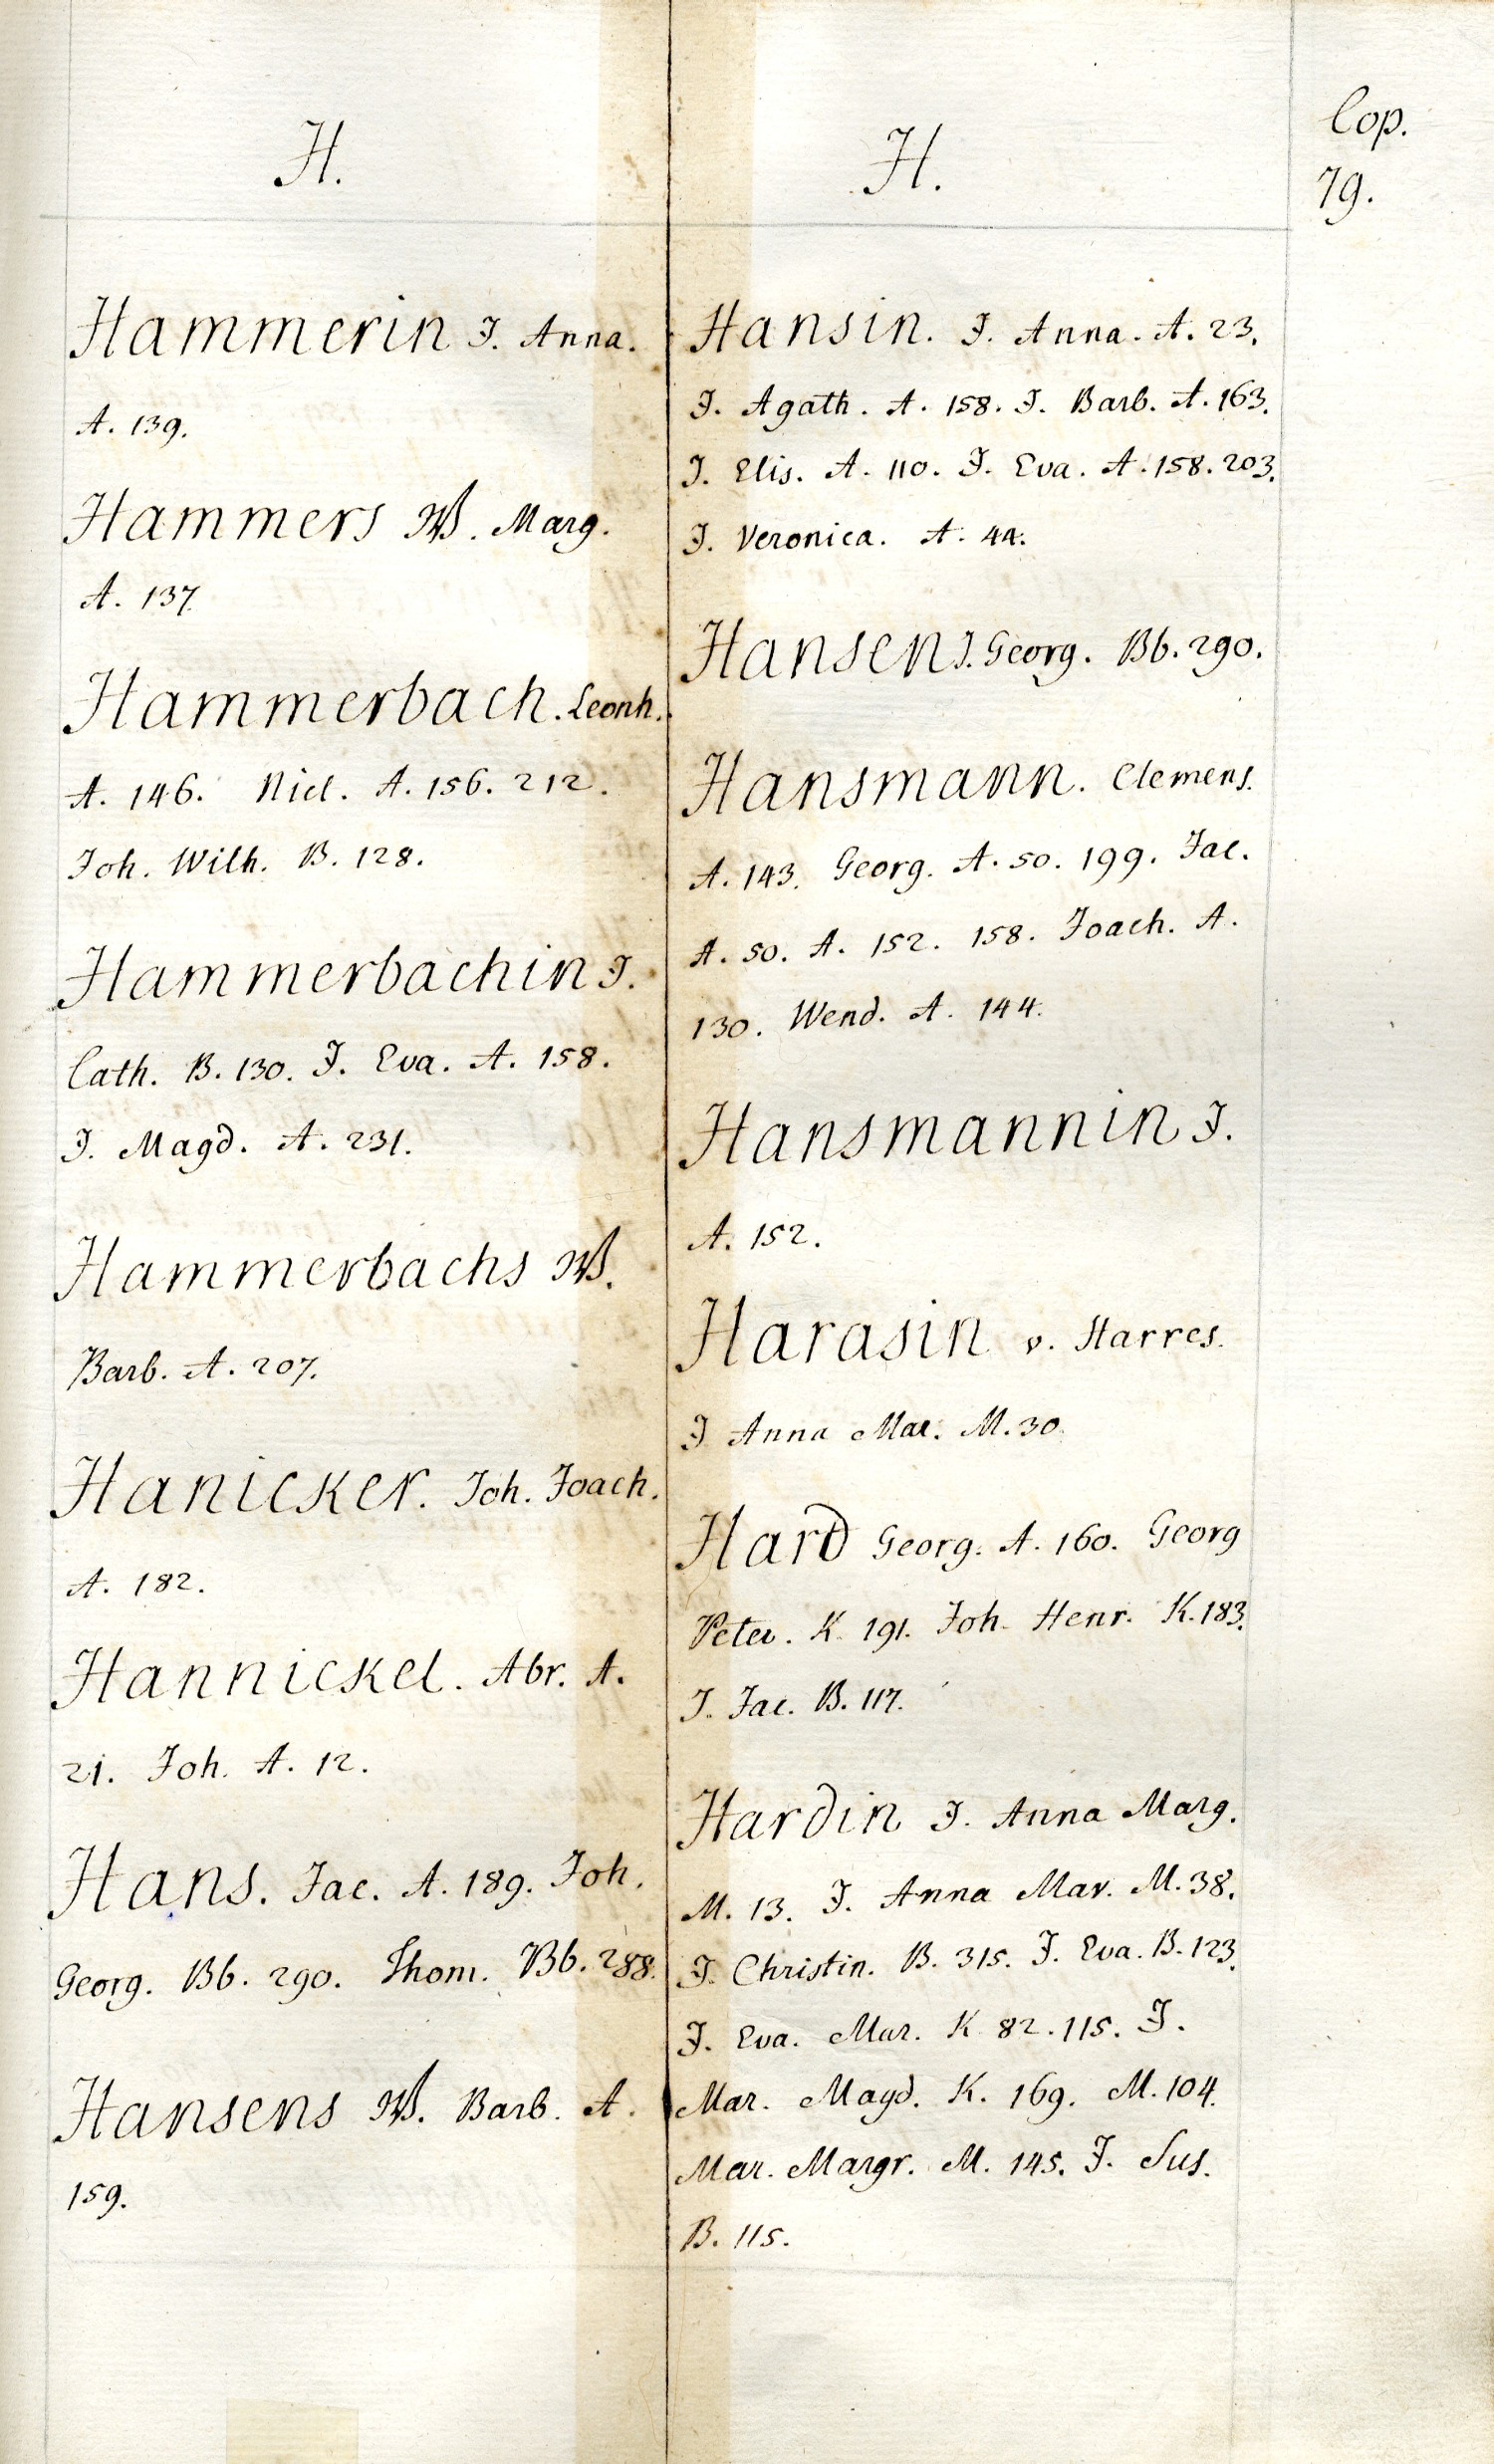 H.
Hammerin J. Anna.
A. 139.
Hammers W. Marg.
A. 137.
Hammerbach. Leonh.
A. 146. Nicl. A. 156. 212.
Joh. Wilh. B. 128.
Hammerbachin J.
Cath. B. 130. J. Eva. A. 158.
J. Magd. A. 231.
Hammerbachs W.
Barb. A. 207.
Hanicker. Joh. Joach.
A. 182.
Hannickel. Abr. A.
21. Joh. A. 12.
Hans. Jac. A. 189. Joh.
Georg. Bb. 290. Thom. Bb. 288.
Hansens W. Barb. A.
159.
H.
Hansin. J. Anna. A. 23.
J. Agath. A. 158. J. Barb. A. 163.
J. Elis. A. 110. J. Eva. A. 158. 203.
J. Veronica. A. 44.
Hansen J. Georg. Bb. 290.
Hansmann. Clemens.
A. 143. Georg. A. 50. 199. Jac.
A. 50. A. 152. 158. Joach. A.
130. Wend. A. 144.
Hansmannin J.
A. 152.
Harasin v. Harres.
J Anna Mar. M. 30
Hard Georg. A. 160. Georg
Peter. K. 191. Joh. Henr. K. 183.
J. Jac. B. 117.
Hardin J. Anna Marg.
M. 13. J. Anna Mar. M. 38.
J. Christin. B. 315. J. Eva. B. 123.
J. Eva. Mar. K 82. 115. J.
Mar. Magd. K. 169. M. 104.
Mar. Margr. M. 145. J. Sus.
B. 115.
Cop.
79.